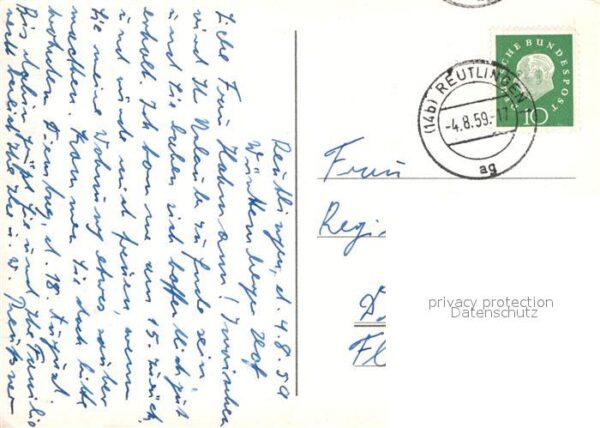 Reutlingen, d. 4.8.59
Württemberger Hof
Liebe Frau Hahmann! Inzwischen
wird Ihr Urlaub zu Ende sein
und Sie haben sich hoffentlich gut
erholt. Ich komme am 15. zurück
und würde mich freuen, wenn
Sie meine Wohnung etwas sauber
machten. Kommen Sie doch bitte
Dienstag, d. 18. August
Bis dahin grüßt Sie und Ihre Familie
recht herzlich Ihre
Frau
Regi
D
Fl
(14b) REUTLINGEN
-4.8.59.-17
ag
CHE BUNDESPOST
10
privacy protection
Datenschutz